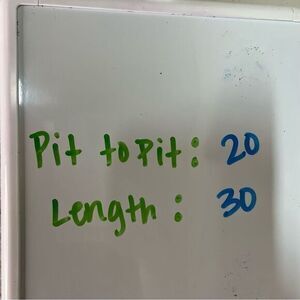 Pit to Pit: 20
Length: 30